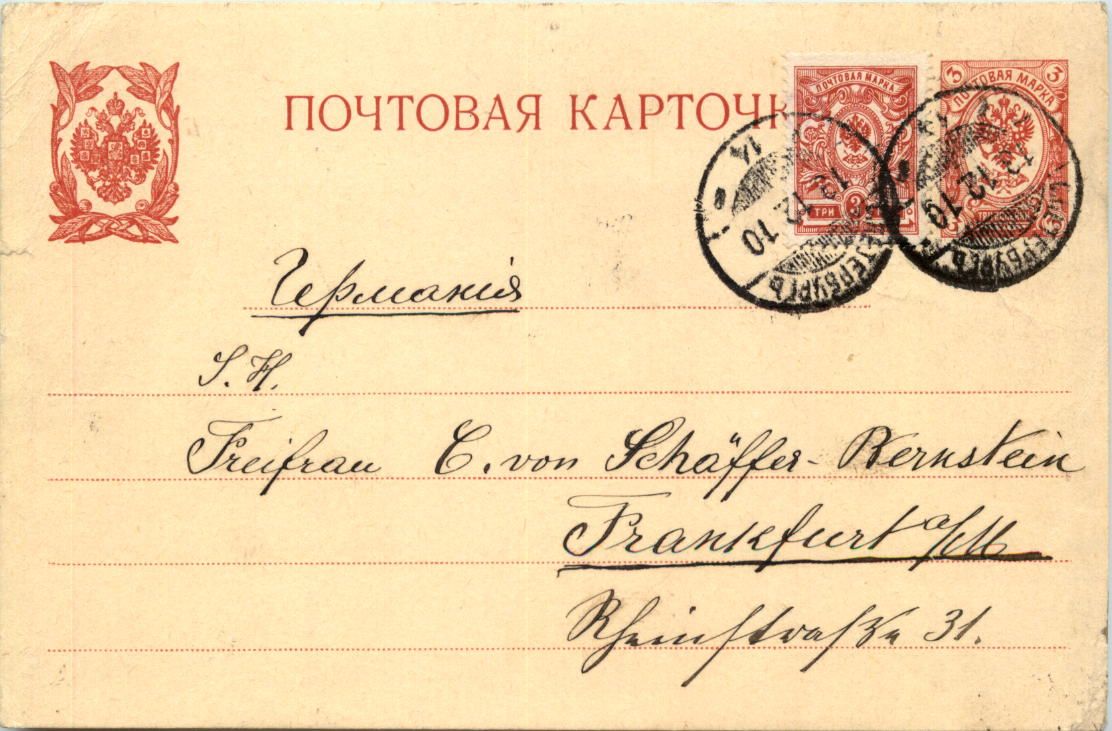 ПОЧТОВАЯ КАРТОЧК
ПОЧТОВАЯ МАРКА
ТРИ 3
3 3
ПОЧТОВАЯ МАРКА
ТРИ
12 10
ПЕТЕРБУРГЪ
12 10
ПЕТЕРБУРГЪ
Германия
S. H.
Freifrau C. von Schäffer-Bernstein
Frankfurt a/M
Rheinstraße 31.